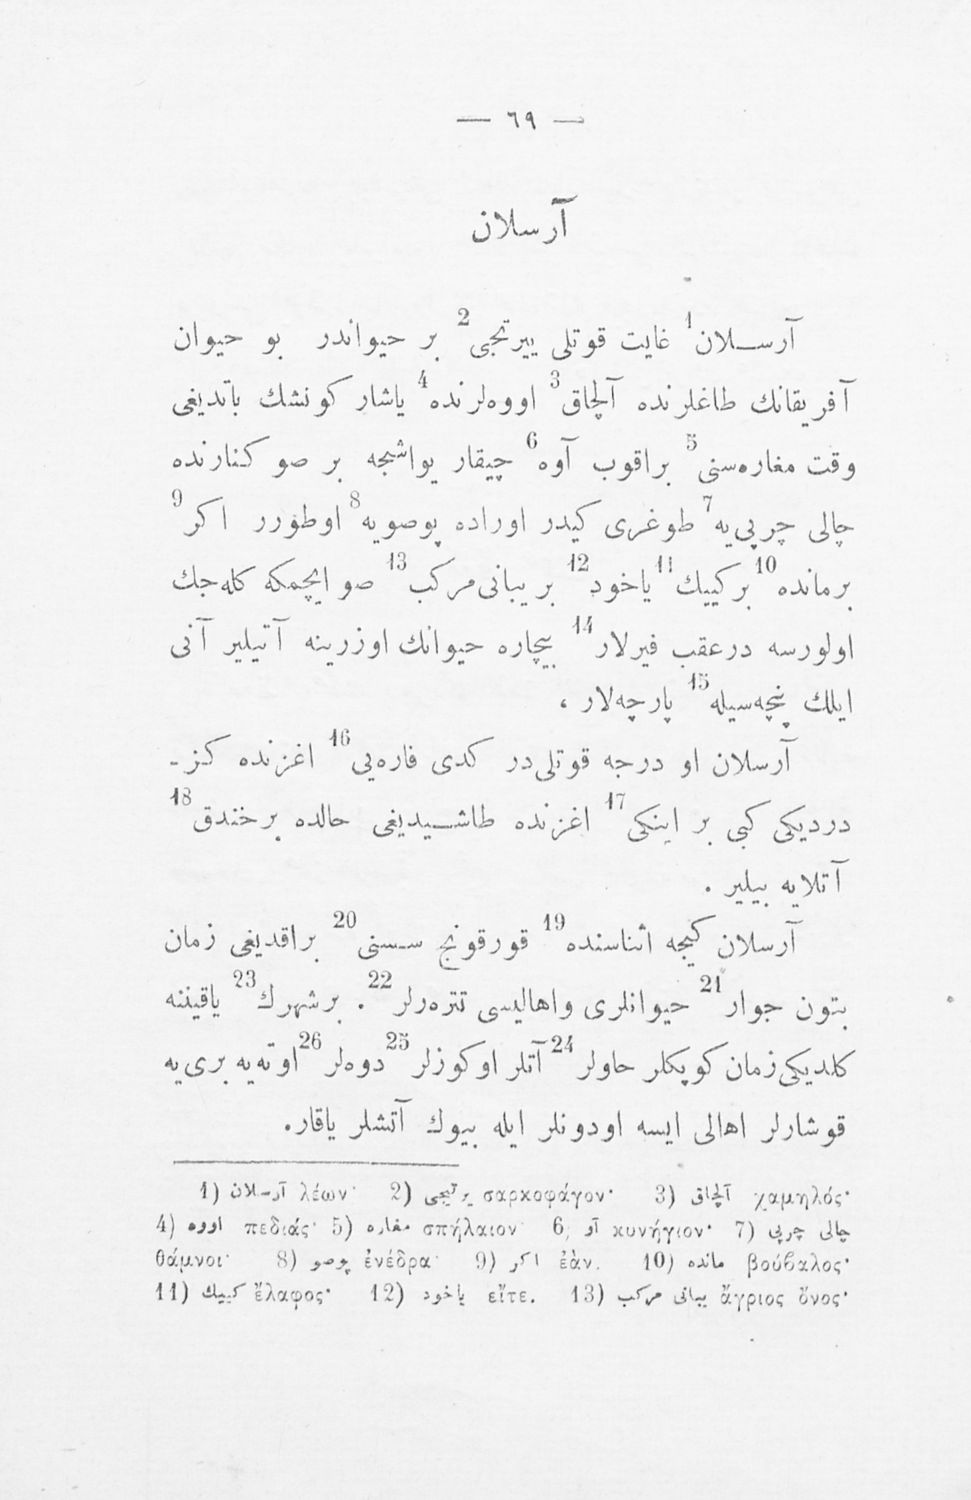 — ٦٩ —
آرسلان
آرســلان1 غايت قوتلى ييرتجى2 بر حيواندر بو حيوان
آفريقانك طاغلرنده آلچاق3 اووه‌لرنده4 ياشار كونشك باتديغى
وقت مغاره‌سنى5 براقوب آوه6 چيقار يواشجه بر صو كنارنده
چالى چرپى‌يه7 طوغرى كيدر اوراده پوصويه8 اوطورر اكر9
برمانده10 بركييك11 ياخود12 بر يبانى‌مركب13 صو ايچمكه كله‌جك
اولورسه درعقب فيرلار14 بيچاره حيوانك اوزرينه آتيلير آنى
ايلك پنچه‌سيله15 پارچه‌لار ،
آرسلان او درجه قوتلى‌در كدى فاره‌يى16 اغزنده كز-
درديكى كبى بر اينكى17 اغزنده طاشــيديغى حالده برخندق18
آتلايه بيلير .
آرسلان كيجه اثناسنده19 قورقونج سسنى20 براقديغى زمان
بتون جوار21 حيوانلرى واهاليسى تتره‌رلر22. برشهرك23 ياقيننه
كلديكى زمان كوپكلر حاولر24 آتلر اوكوزلر25 دوه‌لر26 اوته‌يه برى‌يه
قوشارلر اهالى ايسه اودونلر ايله بيوك آتشلر ياقار.
1) آرسلان λέων· 2) يرتيجى σαρκοφάγον· 3) آلچاق χαμηλός·
4) اووه πεδιάς· 5) مغاره σπήλαιον· 6) آو κυνήγιον· 7) چالى چرپى
θάμνοι· 8) پوصو ἐνέδρα· 9) اكر ἐὰν. 10) مانده βούβαλος·
11) كييك ἔλαφος· 12) ياخود εἴτε. 13) يبانى مركب ἄγριος ὄνος·